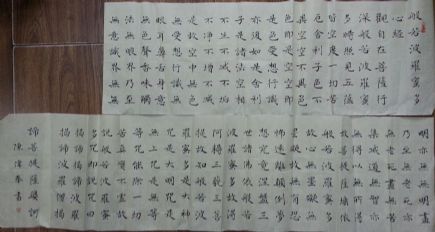 般若波羅蜜多
心經
觀自在菩薩行
深般若波羅蜜
多時照見五蘊
皆空度一切苦
厄舍利子色不
異空空不異色
色即是空空即
是色受想行識
亦復如是舍利
子是諸法空相
不生不滅不垢
不淨不增不減
是故空中無色
無受想行識無
眼耳鼻舌身意
無色聲香味觸
法無眼界乃至
無意識界無無
明亦無無明盡
乃至無老死亦
無老死盡無苦
集滅道無智亦
無得以無所得
故菩提薩埵依
般若波羅蜜多
故心無罣礙無
罣礙故無有恐
怖遠離顛倒夢
想究竟涅槃三
世諸佛依般若
波羅蜜多故得
阿耨三藐三菩
提故知般若波
羅蜜多是大神
咒是大明咒是
無上咒是無等
等咒能除一切
苦真實不虛故
說般若波羅蜜
多咒即說咒曰
揭諦揭諦波羅
揭諦波羅僧揭
諦菩提薩婆訶
陳 春書